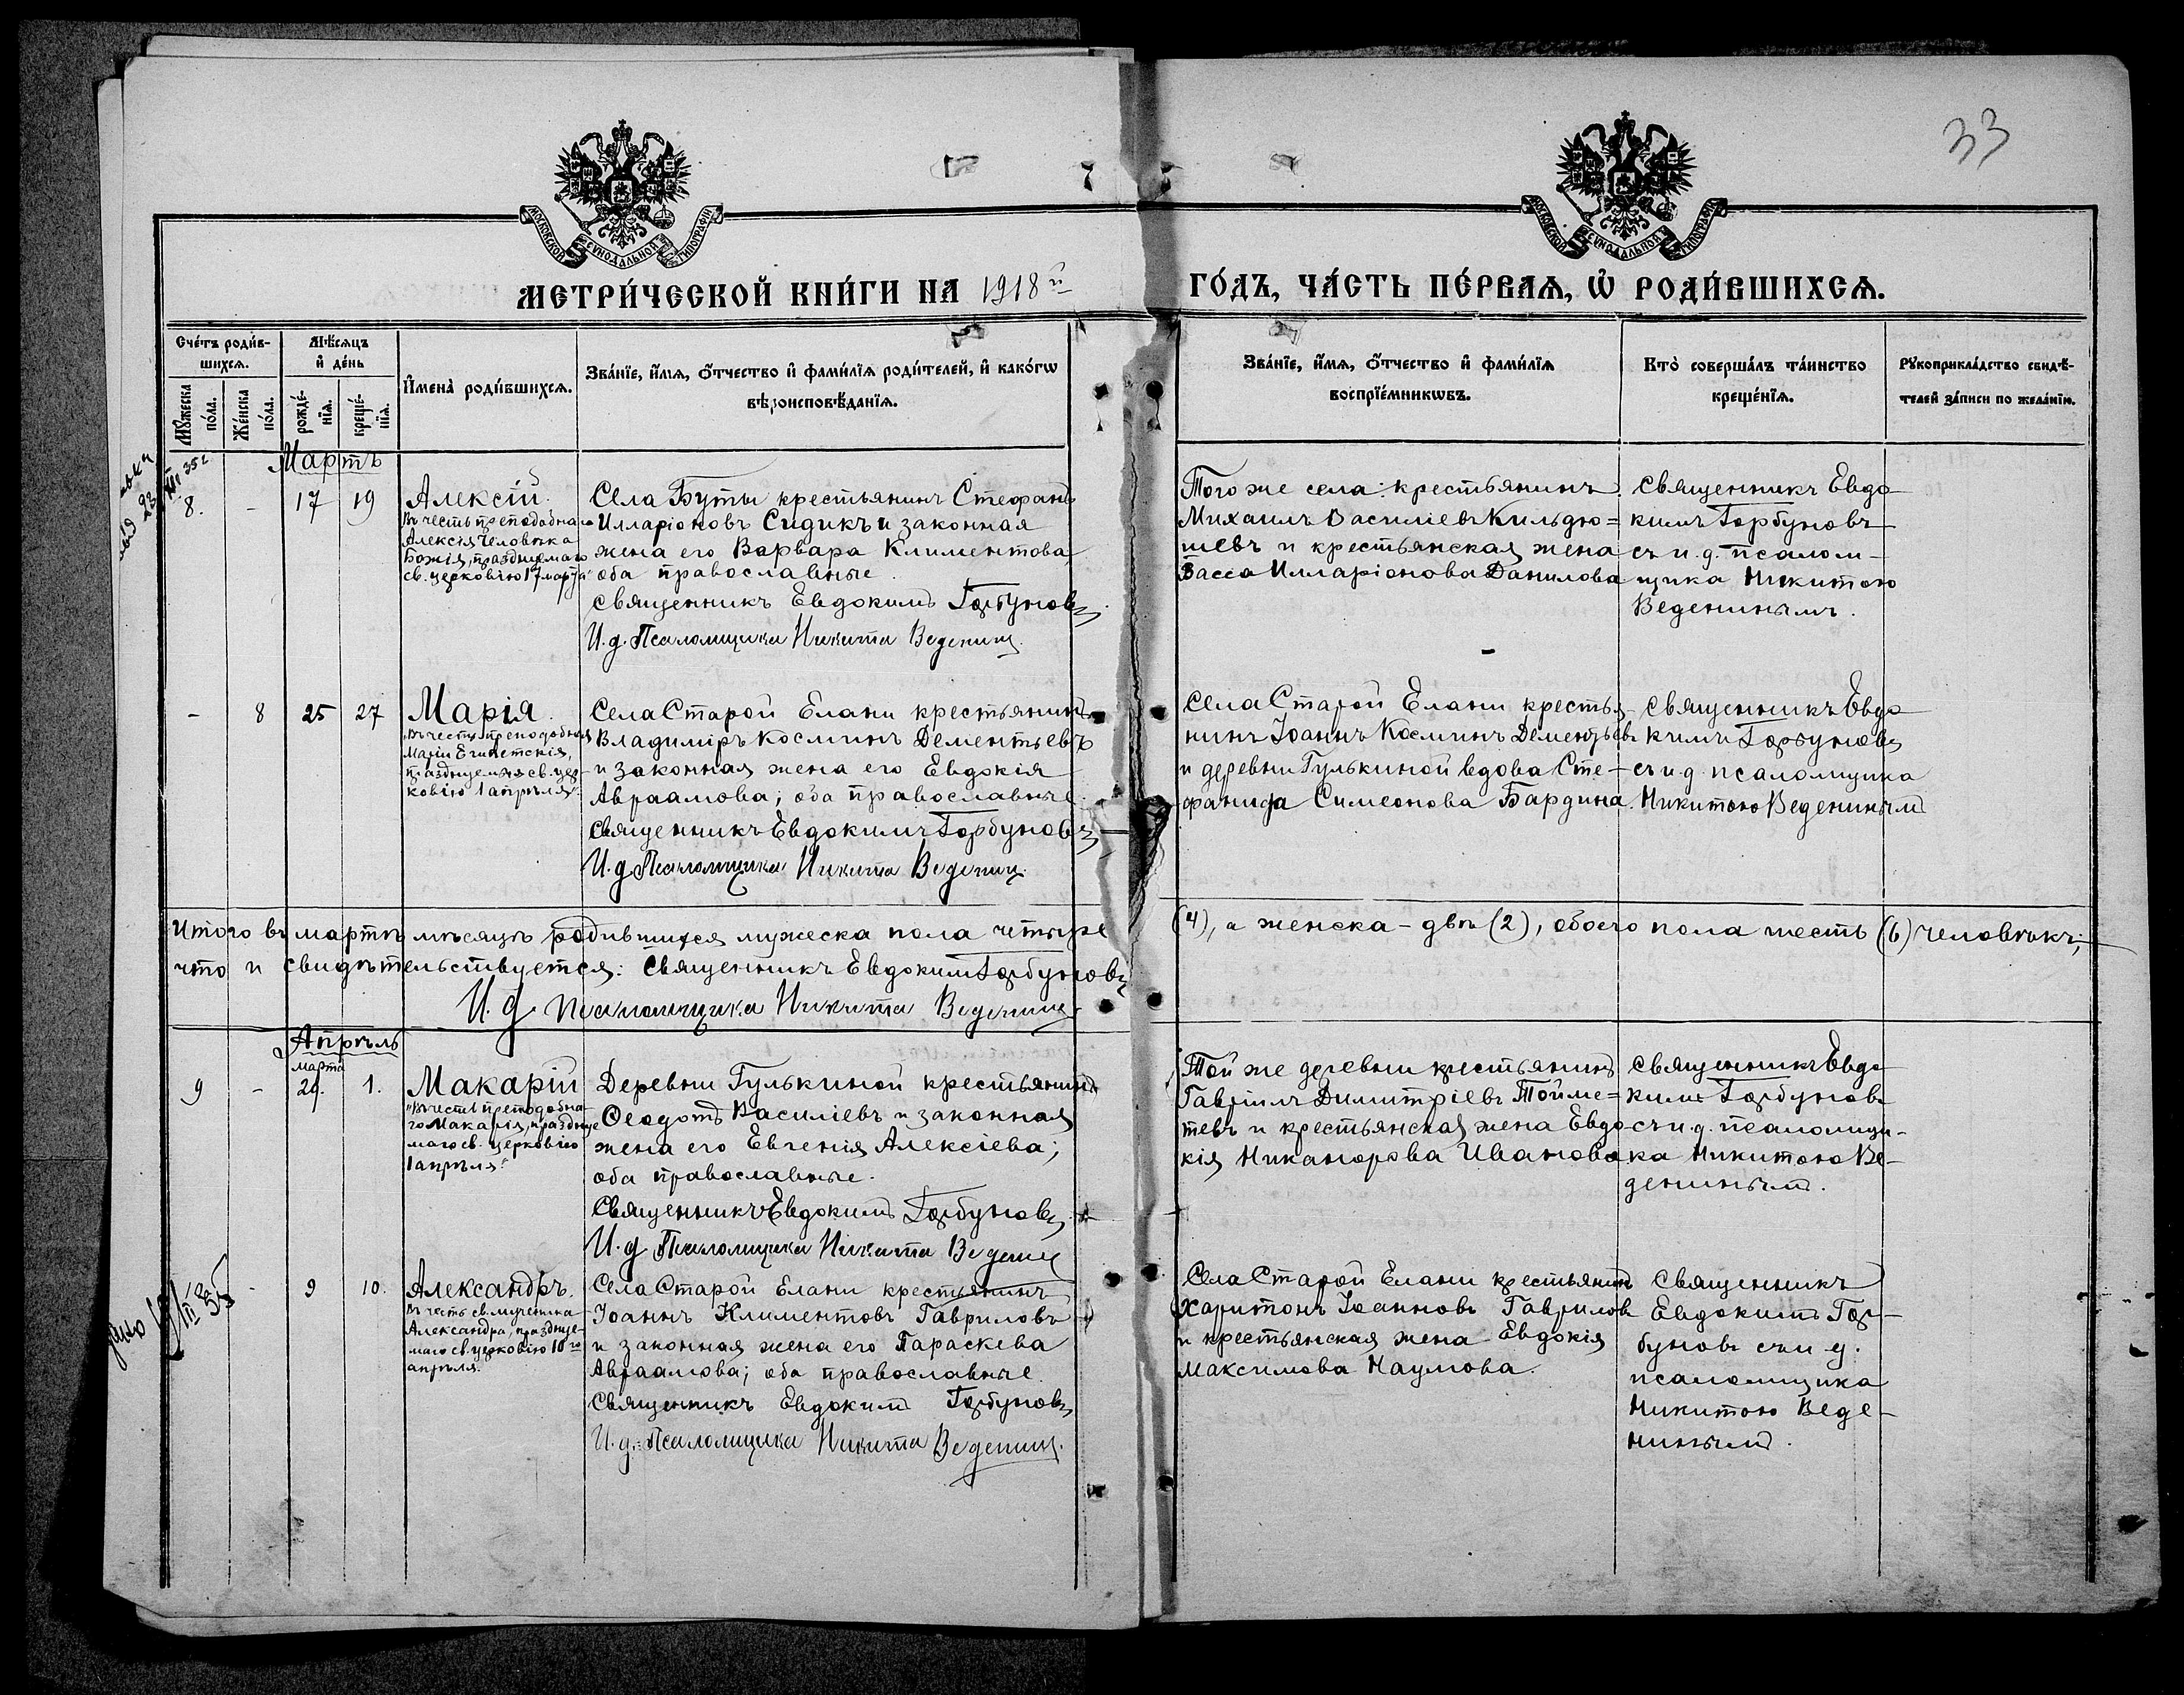 33
МОСКОВСКОЙ СУНОДАЛЬНОЙ ТИПОГРАФІИ
МОСКОВСКОЙ СУНОДАЛЬНОЙ ТИПОГРАФІИ
МЕТРИ́ЧЕСКОЙ КНИ́ГИ НА 1918й ГО́ДЪ, ЧА́СТЬ ПЕ́РВАѦ, Ѽ РОДИ́ВШИХСѦ.
Сче́тъ роди́в-
шихсѧ.
Мꙋ́жеска по́ла.
Же́нска по́ла.
Мѣ́сѧцъ
и҆ де́нь
рожде́-нїѧ.
креще́-нїѧ.
И҆мена̀ роди́вшихсѧ.
Зва́нїе, и҆́мѧ, ѻ҆́тчество и҆ фами́лїѧ роди́телей, и҆ како́гѡ
вѣроисповѣ́данїѧ.
Зва́нїе, и҆́мѧ, ѻ҆́тчество и҆ фами́лїѧ
воспрїе́мникѡвъ.
Кто̀ соверша́лъ та́инство
креще́нїѧ.
Рꙋкоприкла́дство свидѣ́-
телей за́писи по жела́нїю.
Мартъ
8. - 17 19
Алексій.
Въ честь преподобнаго
Алексія Человѣка
Божія, празднуемаго
св. церковію 17 марта
Села Буты крестьянинъ Стефанъ
Илларіоновъ Сидикъ и законная
жена его Варвара Климентова
оба православные.
Священникъ Евдокимъ Горбуновъ
И.д. Псаломщика Никита Веденин.
Того же села: крестьянинъ
Михаилъ Василіевъ Кильдю=
шевъ и крестьянская жена
Васса Илларіонова Данилова
Священникъ Евдо
кимъ Горбуновъ
съ и.д. псалом-
щика Никитою
Веденинымъ.
- 8 25 27
Марія.
Въ честь преподобныя
Маріи Египетскія,
празднуемыя св. цер-
ковію 1 апрѣля.
Села Старой Елани крестьянинъ
Владиміръ Косминъ Дементьевъ
и законная жена его Евдокія
Авраамова; оба православные.
Священникъ Евдокимъ Горбуновъ
И.д. Псаломщика Никита Веденин.
Села Старой Елани крестья-
нинъ Іоаннъ Косминъ Дементьевъ
и деревни Гулькиной вдова Сте-
фанида Симеонова Бардина.
Священникъ Евдо
кимъ Горбуновъ
съ и.д. псаломщика
Никитою Веденинымъ
Итого въ мартѣ мѣсяцѣ родившихся мужеска пола четыре (4), а женска - двѣ (2), обоего пола шесть (6) человѣкъ;
что и свидѣтельствуется: Священникъ Евдокимъ Горбуновъ
И.д. псаломщика Никита Веденин.
Апрѣль
марта
9 - 29. 1.
Макарій
"Въ честь преподобна-
го Макарія, празднуе
маго св. церковію
1 апрѣля."
Деревни Гулькиной крестьянинъ
Ѳеодотъ Василіевъ и законная
жена его Евгенія Алексіева;
оба православные.
Священникъ Евдокимъ Горбуновъ.
И.д. Псаломщика Никита Веденин
Той же деревни крестьянинъ
Гавріилъ Димитріевъ Тойме=
тевъ и крестьянская жена Евдо-
кія Никанорова Иванова.
Священникъ Евдо
кимъ Горбуновъ
съ и.д. псаломщи-
ка Никитою Ве-
денинымъ.
- 9 10.
Александръ.
Въ честь св. мученика
Александра, празднуе-
маго св. церковію 10го
апрѣля.
Села Старой Елани крестьянинъ
Іоаннъ Климентовъ Гавриловъ
и законная жена его Параскева
Авраамова; оба православные.
Священникъ Евдокимъ Горбуновъ
И.д. Псаломщика Никита Веденин.
Села Старой Елани крестьянинъ
Харитонъ Іоанновъ Гавриловъ
и крестьянская жена Евдокія
Максимова Наумова.
Священникъ
Евдокимъ Гор-
буновъ съ и.д.
псаломщика
Никитою Веде-
нинымъ.